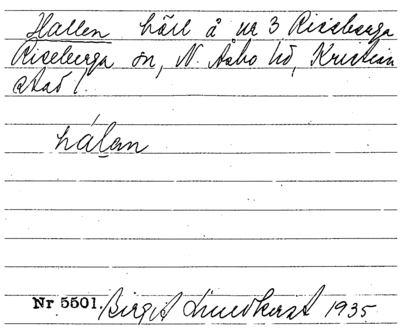 Hallen härl å nr 3 Riseberga
Riseberga sn, N. Åsbo hd, Kristian
stad l.
hálan
Nr 5501. Birgit Lindkvist 1935